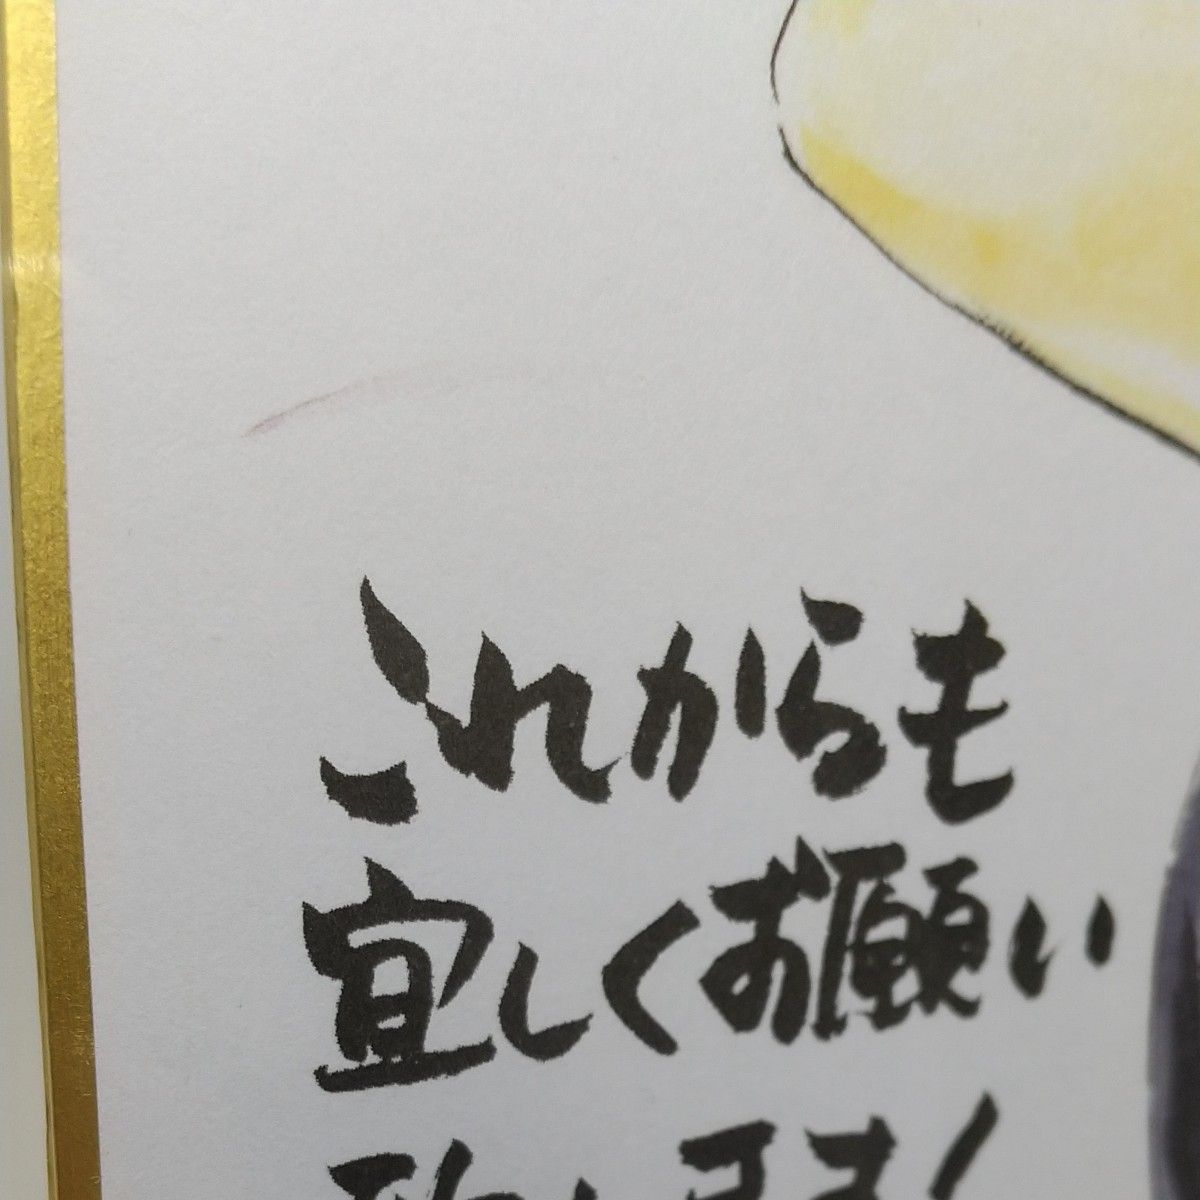 これからも
宜しくお願い